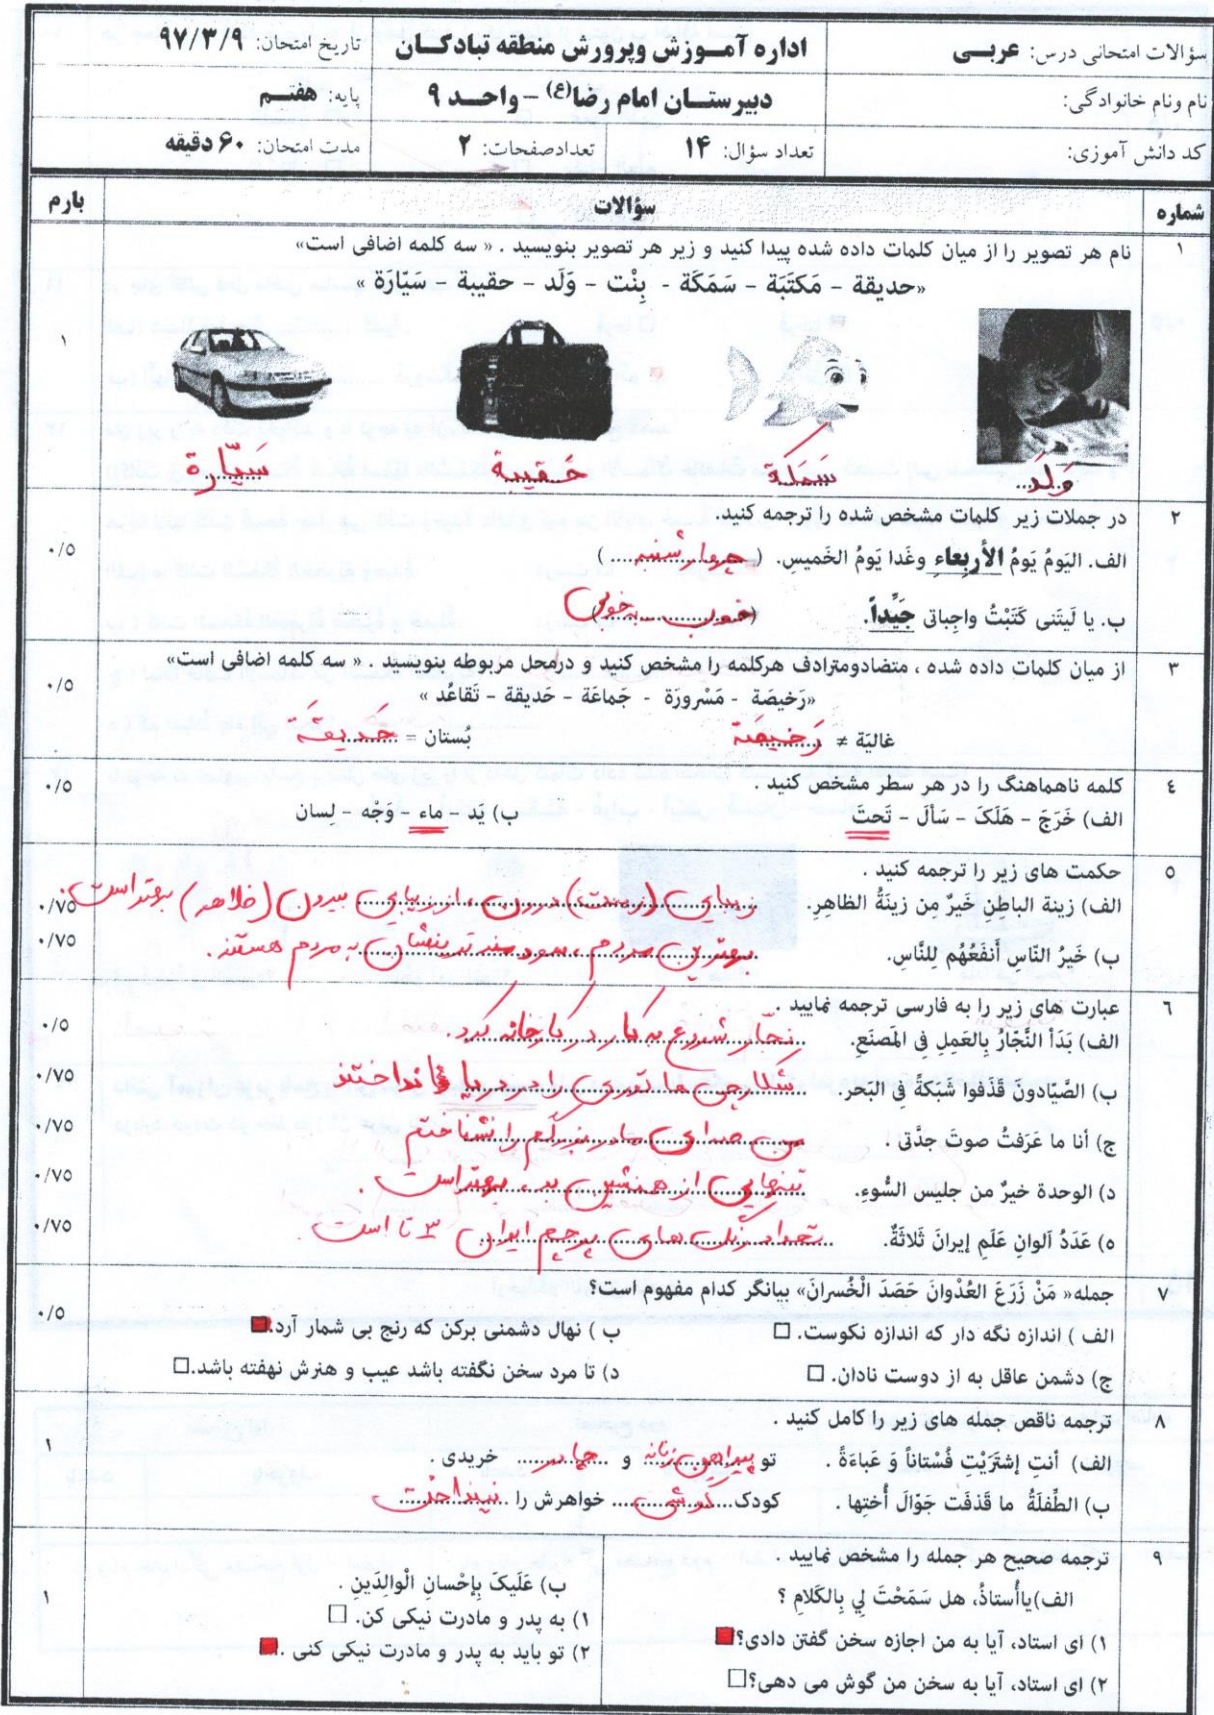 سؤالات امتحانی درس: عربی
اداره آموزش وپرورش منطقه تبادکان
تاریخ امتحان: ۹۷/۳/۹
نام ونام خانوادگی:
دبیرستان امام رضا(ع) – واحد ۹
پایه: هفتم
کد دانش آموزی:
تعداد سؤال: ۱۴
تعدادصفحات: ۲
مدت امتحان: ۶۰ دقیقه
شماره سؤالات بارم
۱ نام هر تصویر را از میان کلمات داده شده پیدا کنید و زیر هر تصویر بنویسید . « سه کلمه اضافی است»
«حدیقة – مَکتَبَة – سَمَکَة - بِنْت – وَلَد – حقیبة – سَیّارَة »
۱
وَلَد سَمَکة حَقیبة سَیّارة
۲ در جملات زیر کلمات مشخص شده را ترجمه کنید.
الف. الیَومُ یَومُ الأربعاءِ وغَدا یَومُ الخَمیسِ. (چهارشنبه) ۰/۵
ب. یا لَیتَنی کَتَبْتُ واجِباتی جَیِّداً. (خوب - به خوبی)
۳ از میان کلمات داده شده ، متضادومترادف هرکلمه را مشخص کنید و درمحل مربوطه بنویسید . « سه کلمه اضافی است» ۰/۵
«رَخیصَة - مَسْرورَة - جَماعَة - حَدیقة - تَقاعُد »
غالیَة ≠ رَخیصَة بُستان = حَدیقَة
٤ کلمه ناهماهنگ را در هر سطر مشخص کنید . ۰/۵
الف) خَرَجَ – هَلَکَ – سَألَ – تَحتَ ب) یَد – ماء – وَجْه – لِسان
۵ حکمت های زیر را ترجمه کنید .
الف) زینة الباطِنِ خَیرٌ مِن زینَةُ الظاهِرِ. زیبایی (زینت) درون ، از زیبایی بیرون (ظاهر) بهتر است. ۰/۷۵
ب) خَیرُ النّاسِ أَنفَعُهُم لِلنَّاسِ. بهترین مردم ، سودمندترینشان به مردم هستند. ۰/۷۵
٦ عبارت های زیر را به فارسی ترجمه نمایید .
الف) بَدَأَ النَّجّارُ بِالعَمِلِ فِی المَصنَعِ. نجّار شروع به کار در کارخانه کرد. ۰/۵
ب) الصَّیّادونَ قَذَفوا شَبَکَةً فِی البَحر. شکارچی ها تورشی را در دریا انداختند ۰/۷۵
ج) أنا ما عَرَفتُ صوتَ جدَّتی . من صدای مادربزرگم را نشناختم ۰/۷۵
د) الوحدة خیرٌ من جلیس السُّوءِ. تنهایی از همنشین بد ، بهتر است . ۰/۷۵
ه) عَدَدُ ألوانِ عَلَمِ إیرانَ ثَلاثَةٌ. تعداد رنگ های پرچم ایران ۳ تا است ۰/۷۵
۷ جمله« مَنْ زَرَعَ العُدْوانَ حَصَدَ الْخُسرانَ» بیانگر کدام مفهوم است؟
الف ) اندازه نگه دار که اندازه نکوست. □ ب ) نهال دشمنی برکن که رنج بی شمار آرد.■ ۰/۵
ج) دشمن عاقل به از دوست نادان. □ د) تا مرد سخن نگفته باشد عیب و هنرش نهفته باشد.□
۸ ترجمه ناقص جمله های زیر را کامل کنید .
الف) أنتِ إشتَرَیْتِ فُسْتاناً وَ عَباءَةً . تو پیراهن زنانه و چادر خریدی . ۱
ب) الطِّفلَةُ ما قَذَفَت جَوّالَ أُختِها . کودک گوشی خواهرش را نینداخت
۹ ترجمه صحیح هر جمله را مشخص نمایید .
الف)یاأُستاذُ، هل سَمَحْتَ لِی بِالکَلامِ ؟
۱) ای استاد، آیا به من اجازه سخن گفتن دادی؟■
۲) ای استاد، آیا به سخن من گوش می دهی؟□
ب) عَلَیکَ بِإحْسانِ الْوالِدَینِ .
۱) به پدر و مادرت نیکی کن. □
۲) تو باید به پدر و مادرت نیکی کنی .■
۱